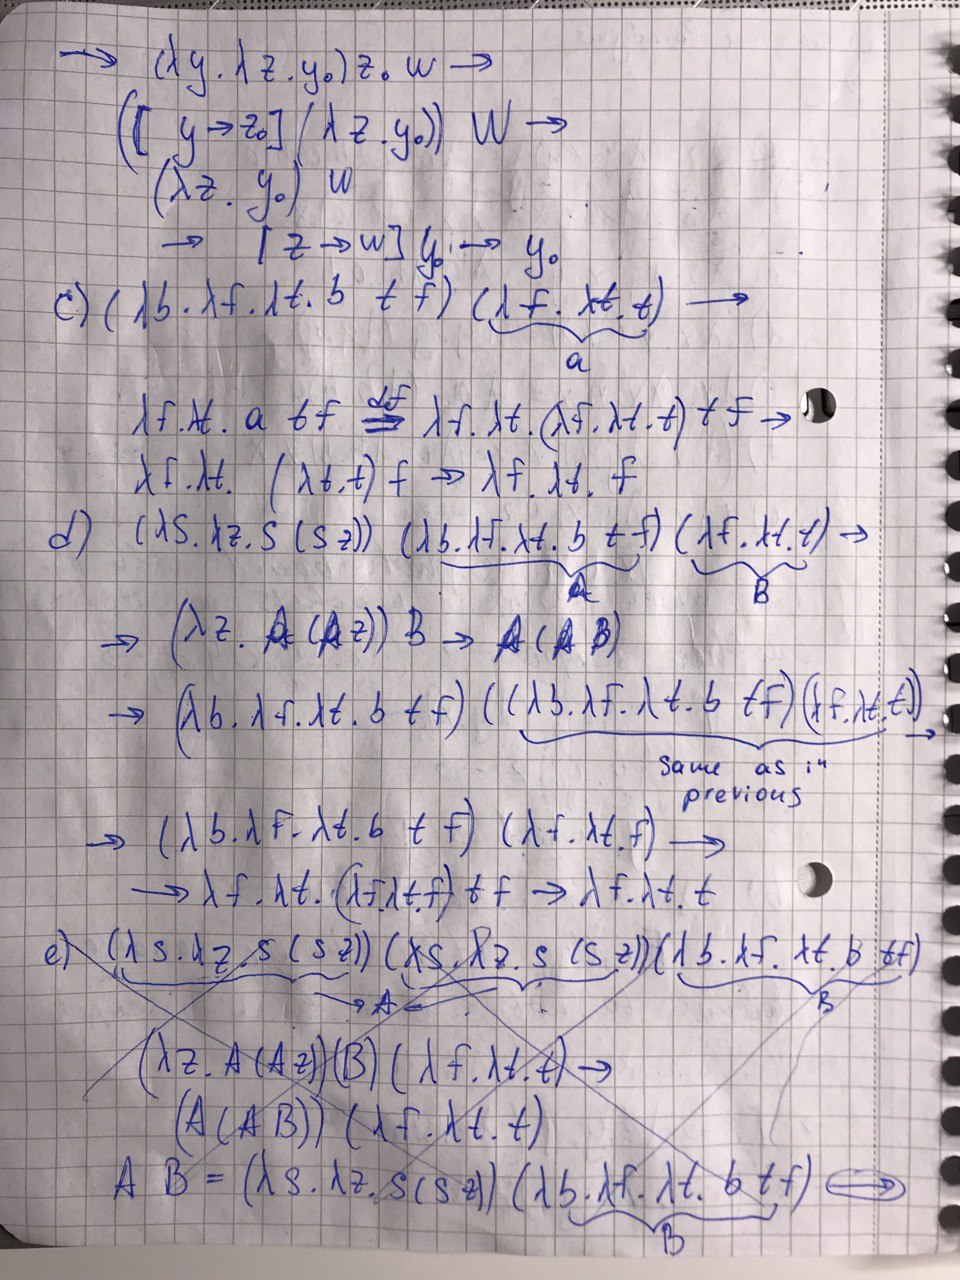 → (λy.λz.y₀)z₀ w →
([y→z₀](λz.y₀)) W →
(λz. y₀) w
→ [z→w] y₀ → y₀
c) (λb.λf.λt.b t f) (λf.λt.t) →
a
λf.λt. a t f =df λf.λt.(λf.λt.t) t f →
λf.λt. (λt.t) f → λf.λt. f
d) (λs.λz.s (s z)) (λb.λf.λt.b t f) (λf.λt.t) →
A B
→ (λz. A (A z)) B → A (A B)
→ (λb.λf.λt.b t f) ((λb.λf.λt.b t f)(λf.λt.t)) →
same as in
previous
→ (λb.λf.λt.b t f) (λf.λt.f) →
→ λf.λt.(λf.λt.f) t f → λf.λt.t
e) (λs.λz.s (s z)) (λs.λz.s (s z)) (λb.λf.λt.b t f)
→ A ← B
(λz.A(A z))(B) (λf.λt.t) →
(A(A B)) (λf.λt.t)
A B = (λs.λz.s(s z)) (λb.λf.λt.b t f) ⟹
B